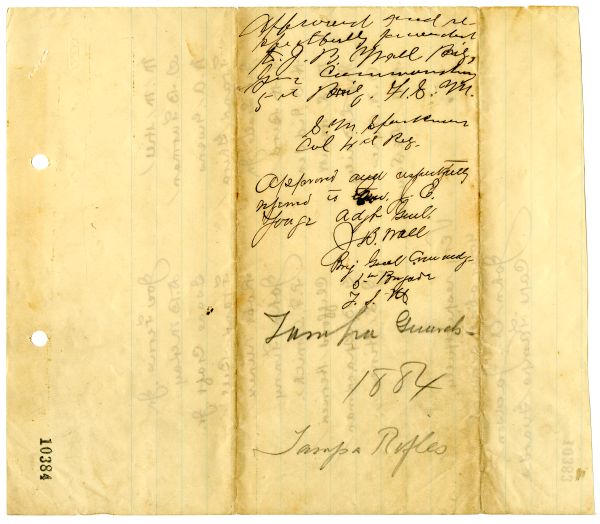 Approved and re-
spectfully forwarded
to J. B. Wall Brig.
Gen Commanding
5th Brig. F. S. M.
S. M. Sparkman
Col 4th Reg.
Approved and respectfully
referred to Gen. J. E.
Yonge Adjt Genl.
J. B. Wall
Brig Genl Comdg
5th Brigade
F. S. M
Tampa Guards
1884
Tampa Rifles
10384
10383